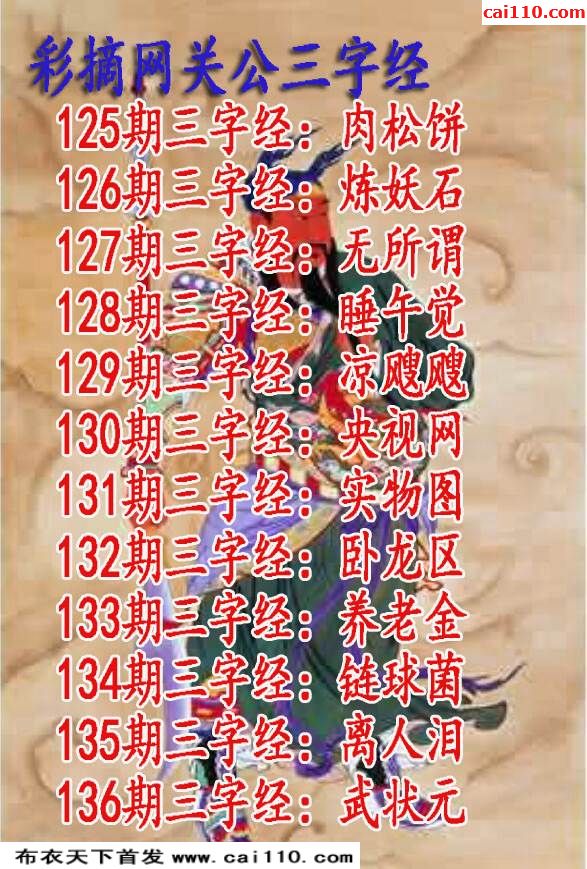 cai110.com
彩摘网关公三字经
125期三字经：肉松饼
126期三字经：炼妖石
127期三字经：无所谓
128期三字经：睡午觉
129期三字经：凉飕飕
130期三字经：央视网
131期三字经：实物图
132期三字经：卧龙区
133期三字经：养老金
134期三字经：链球菌
135期三字经：离人泪
136期三字经：武状元
布衣天下首发 www.cai110.com